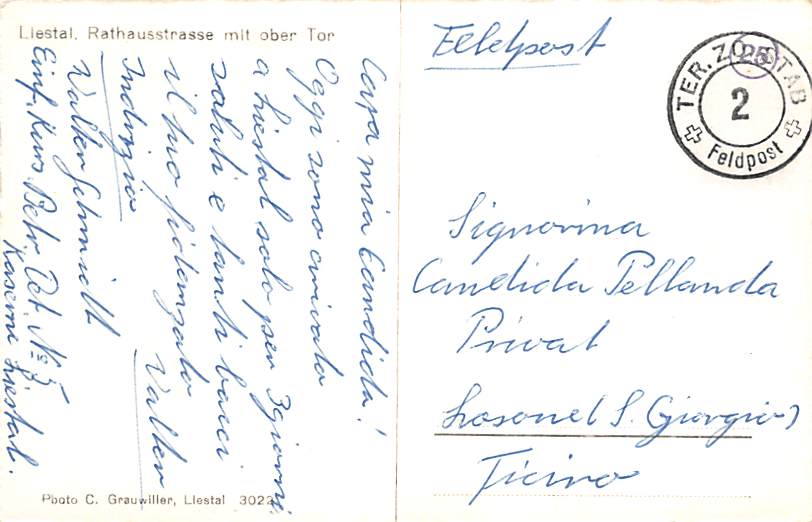 Liestal, Rathausstrasse mit ober Tor
Cara mia Candida!
Oggi sono arrivato
a Liestal solo per 3 giorni.
saluti e tanti bacci
il tuo fidanzato
Walter
Indirizzo
Walter Schmidt
Einf. Kurs. Betr. Det. No 5
Kaserne Liestal.
Photo C. Grauwiller, Liestal 3022
Feldpost
TER. ZO STAB
25
2
Feldpost
Signorina
Candida Pellanda
Privat
Losone (S. Giorgio)
Ticino